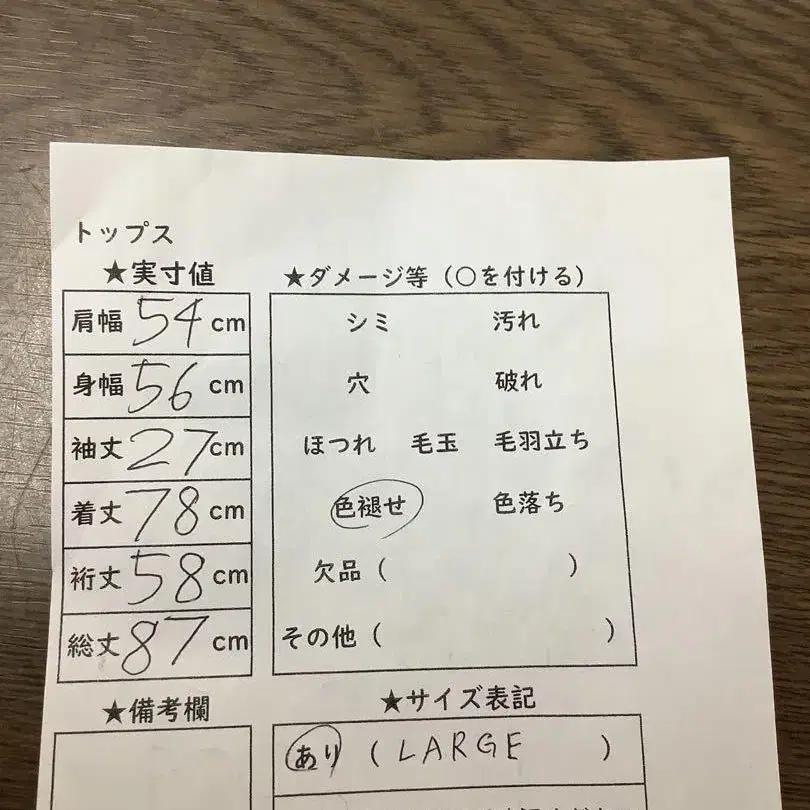 トップス
★実寸値
肩幅 54 cm
身幅 56 cm
袖丈 27 cm
着丈 78 cm
裄丈 58 cm
総丈 87 cm
★備考欄
★ダメージ等（○を付ける）
シミ 汚れ
穴 破れ
ほつれ 毛玉 毛羽立ち
色褪せ 色落ち
欠品（ ）
その他（ ）
★サイズ表記
あり （LARGE ）